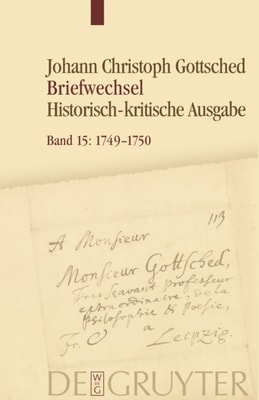 Johann Christoph Gottsched
Briefwechsel
Historisch-kritische Ausgabe
Band 15: 1749–1750
113
A Monsieur
Monsieur Gottsched,
Tres Savant Professeur
extraordinaire, de la
Philosophie & Poesie,
Fr. a
Leipzig.
W
DE
G
DE GRUYTER